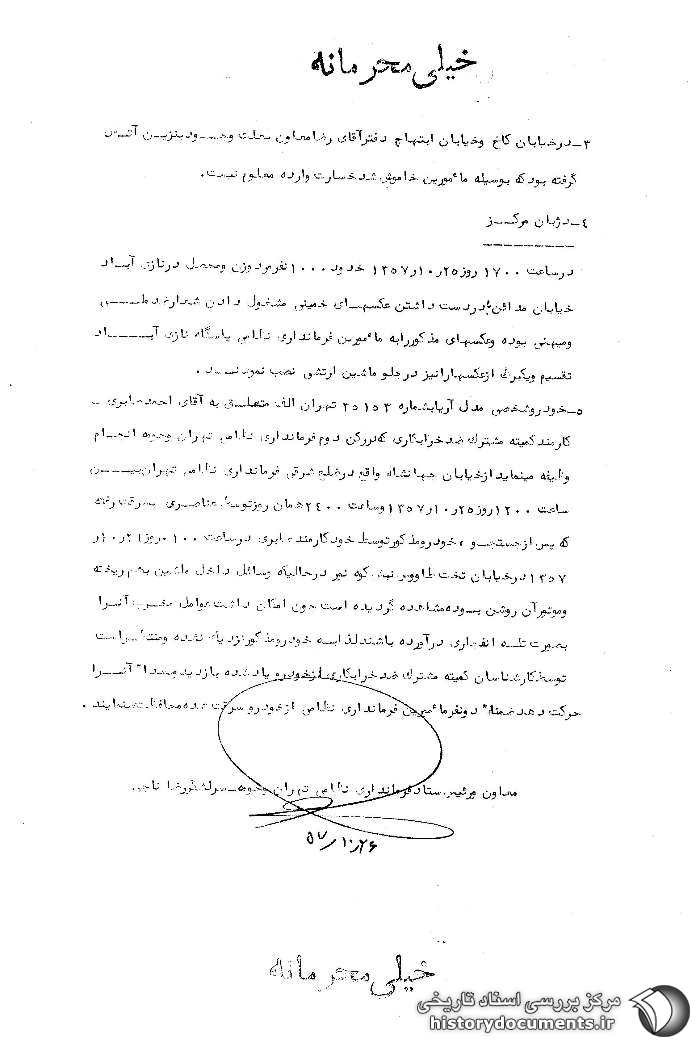 خیلی محرمانه
۳ـ درخیابان کاخ وخیابان ابتهاج دفترآقای رضامعاون بعلت وجـود بنزیـن آتش
گرفته بود که بوسیله مأمورین خاموش شد خسارت وارده معلوم نیست .
٤ـ دژبان مرکـــز
درساعت ۱۷۰۰ روز ۲۵ر۱۰ر۱۳۵۷ حدود ۱۰۰۰ نفرمردوزن ومحصل درنازی آبــاد
خیابان مدائن بادردست داشتن عکسهـای خمینی مشغول دادن شعارضد
ومیهنی بوده وعکسهای مذکوررابه مأمورین فرمانداری نظامی پاسگاه نازی آبـــاد
تقسیم ویکبرگ ازعکسهارانیز درجلو ماشین ارتشی نصب نمودنـــد .
۵ـ خودروشخصی مدل آریابشماره ۲۵۱۵۳ تهران الف متعلـق به آقای احمدصابری ـ
کارمندکمیته مشترک ضدخرابکاری که دررکن دوم فرمانداری نظامی تهران وحومه انجـام
وظیفه مینماید ازخیابان جهانشاه واقع درضلع شرقی فرمانداری نظامی تهران بیـــن
ساعت ۱۲۰۰ روز ۲۵ر۱۰ر۱۳۵۷ وساعت ۲۴۰۰ همان روزتوسط عناصری بسرقت رفته
که پس ازجستجـو ، خودرومذکورتوسط خودکارمند صابری درساعت ۰۱۰۰ روز ۲۶ر۱۰ر
۱۳۵۷ درخیابان تخت طاووس نبش کوه نور درحالیکه وسائل داخل ماشین بهم ریخته
وموتورآن روشن بـوده مشاهده گردیده است چون امکان داشت عوامل مخـرب آنـرا
بصورت تلـه انفجاری درآورده باشندلذا بـه خودرومذکورنزدیک نشده ومنتظـراست
توسط کارشناسان کمیته مشترک ضدخرابکاری ازخودرو یادشده بازدیدوبعداً آنــرا
حرکت دهد ضمناً دونفرمأمورین فرمانداری نظامی ازخودروسرقت شده محافظت مینمایند .
معاون ورئیس ستادفرمانداری نظامی تهران وحومه ـ سرلشگررضا ناجی
۲۶ر۱۰ر۵۷
خیلی محرمانه
مرکز بررسی اسناد تاریخی
historydocuments.ir